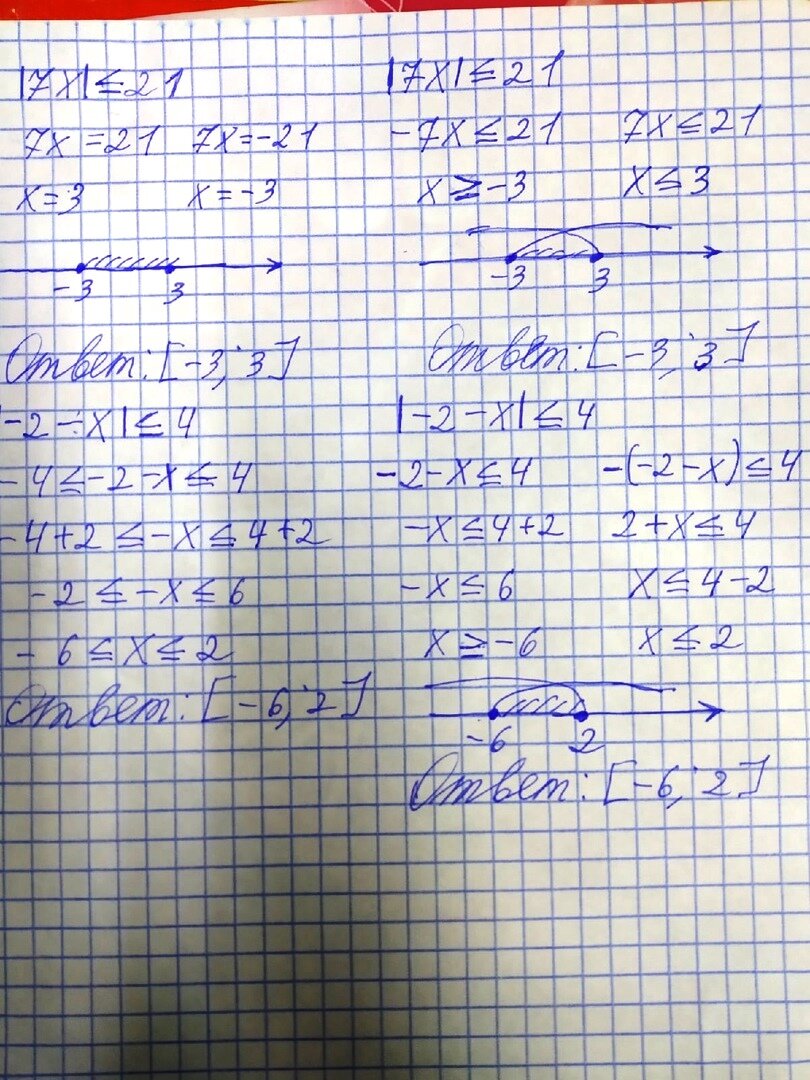 |7x| ≤ 21
7x = 21 7x = -21
x = 3 x = -3
-3 3
Ответ: [-3; 3]
|-2 - x| ≤ 4
-4 ≤ -2 - x ≤ 4
-4 + 2 ≤ -x ≤ 4 + 2
-2 ≤ -x ≤ 6
-6 ≤ x ≤ 2
Ответ: [-6; 2]
|7x| ≤ 21
-7x ≤ 21 7x ≤ 21
x ≥ -3 x ≤ 3
-3 3
Ответ: [-3; 3]
|-2 - x| ≤ 4
-2 - x ≤ 4 -(-2 - x) ≤ 4
-x ≤ 4 + 2 2 + x ≤ 4
-x ≤ 6 x ≤ 4 - 2
x ≥ -6 x ≤ 2
-6 2
Ответ: [-6; 2]